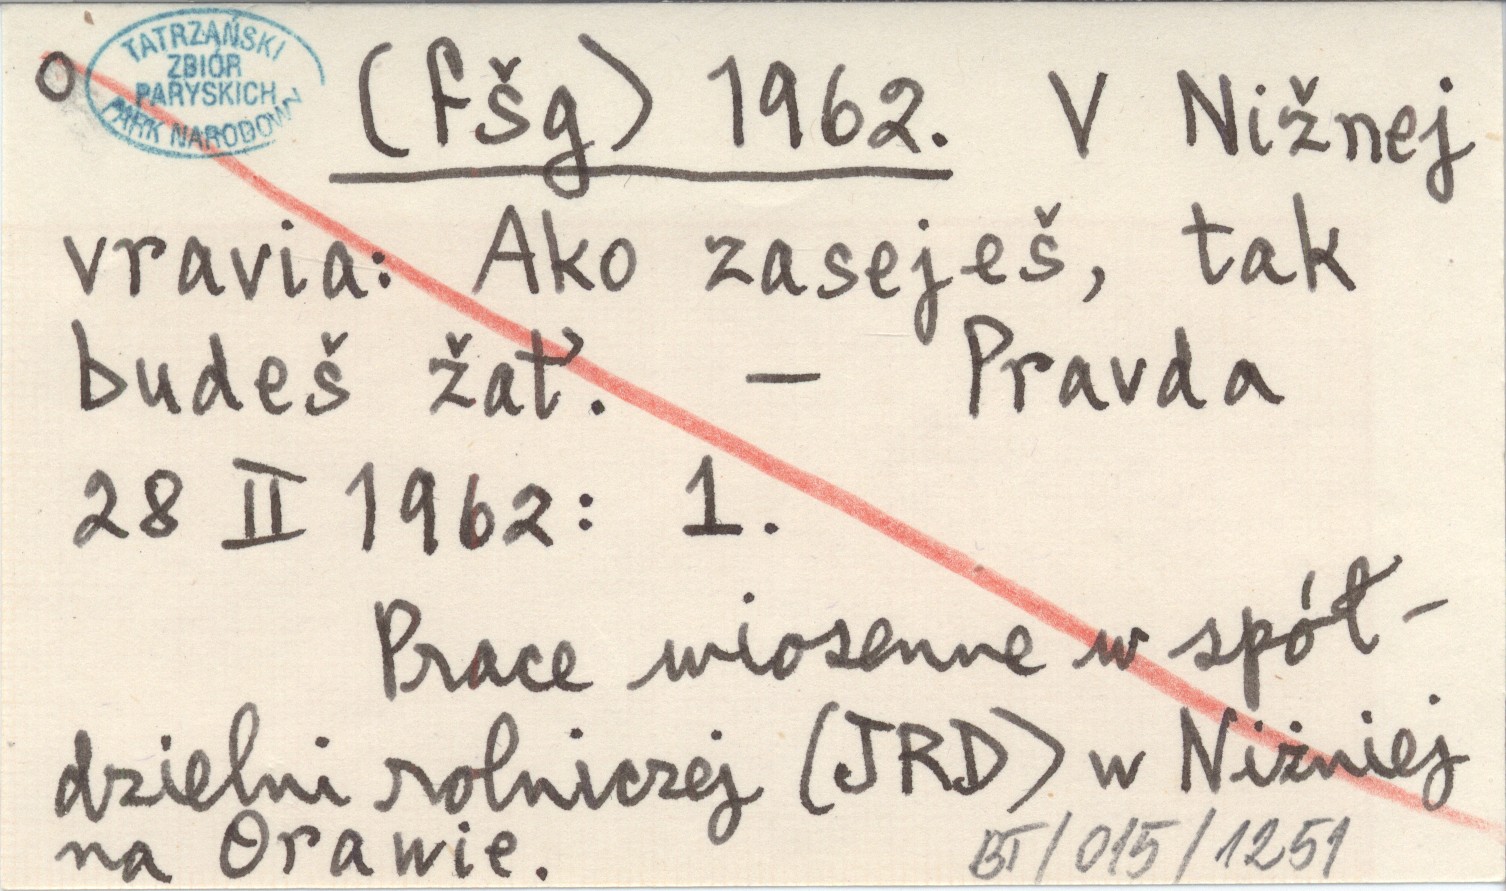 o
TATRZAŃSKI
ZBIÓR
PARYSKICH
PARK NARODOWY
(fšg) 1962. V Nižnej
vravia: Ako zaseješ, tak
budeš žať. — Pravda
28 II 1962: 1.
Prace wiosenne w spół-
dzielni rolniczej (JRD) w Niżniej
na Orawie.
BT/015/1251